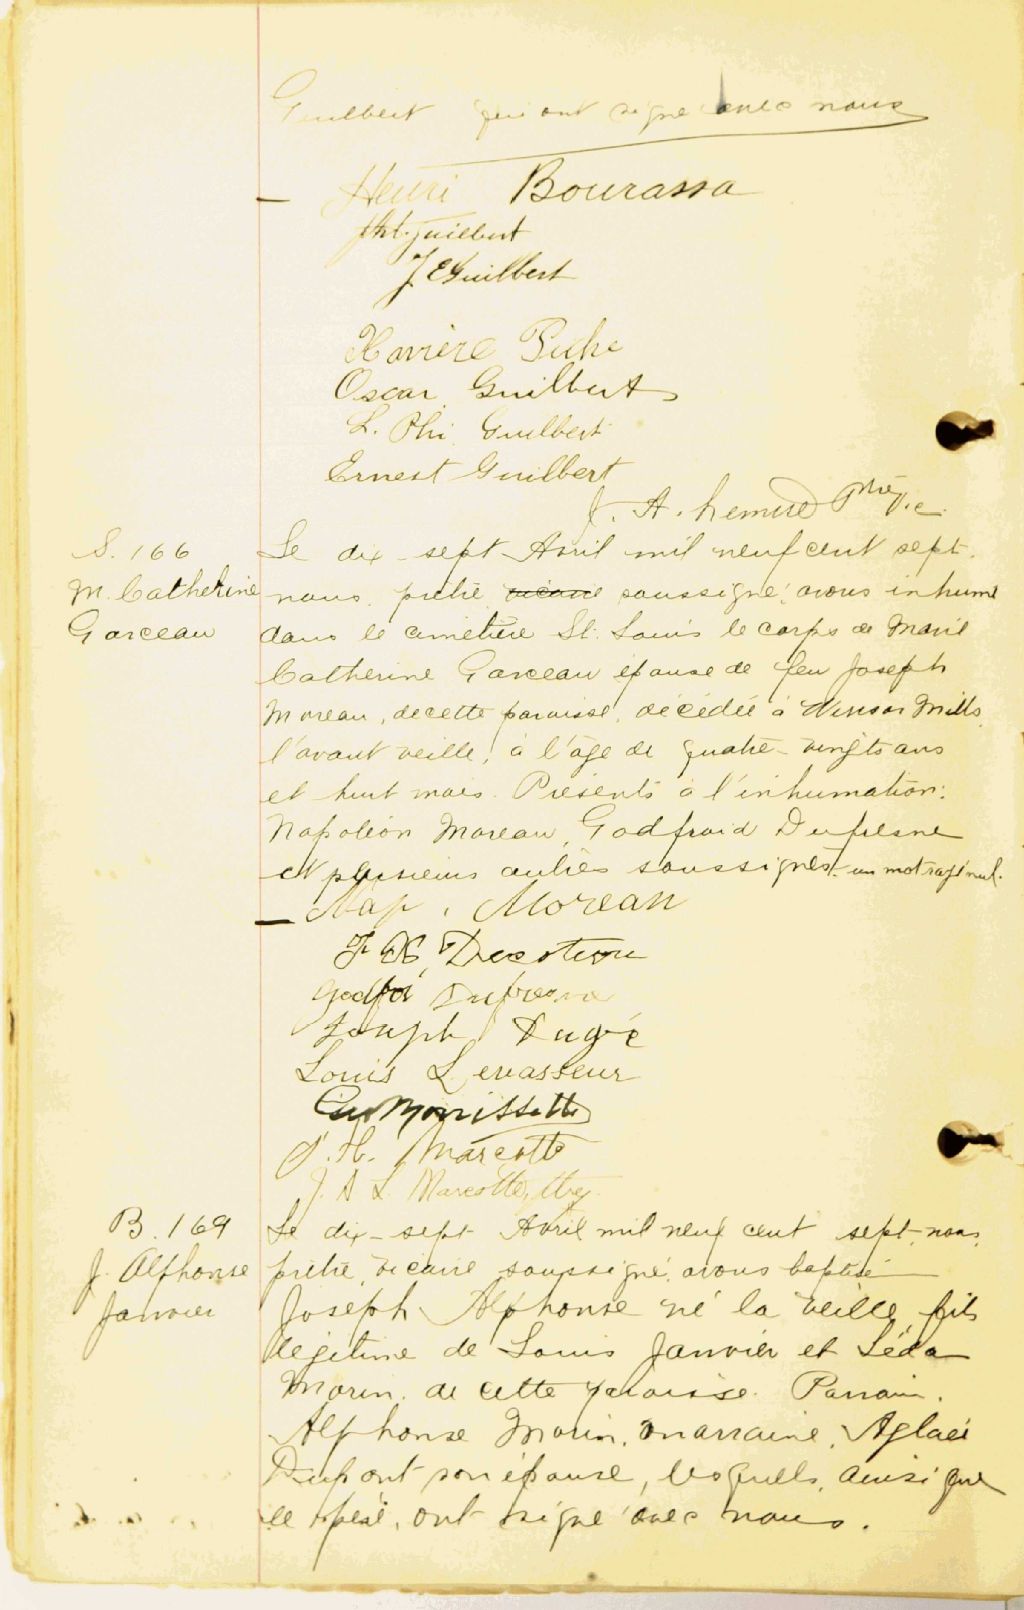 Guilbert qui ont signé avec nous
Henri Bourassa
Guilbert
J E Guilbert
Xavière Piché
Oscar Guilbert
L. Phi Guilbert
Ernest Guilbert
J. A. Lemire Ptre V.c.
S. 166
M. Catherine
Garceau
Le dix-sept Avril mil neuf cent sept,
nous prêtre vicaire soussigné, avons inhumé
dans le cimetière St. Louis le corps de Marie
Catherine Garceau épouse de feu Joseph
Moreau, de cette paroisse, décédée à Winsor Mills,
l'avant veille, à l'âge de quatre-vingts ans
et huit mois. Présents à l'inhumation:
Napoléon Moreau, Godfroid Dufresne
et plusieurs autres soussignés. un mot rayé nul.
Nap. Moreau
Godfroi Dufresne
Joseph Dugré
Louis Levasseur
Morrissette
P. H. Marcotte
J. A L Marcotte, ptre
B. 169
J. Alphonse
Janvier
Le dix-sept Avril mil neuf cent sept, nous,
prêtre, vicaire soussigné, avons baptisé
Joseph Alphonse né la veille, fils
légitime de Louis Janvier et Léda
Morin, de cette paroisse. Parrain,
Alphonse Morin, marraine, Aglaée
Dupont son épouse, lesquels, ainsi que
le père, ont signé avec nous.